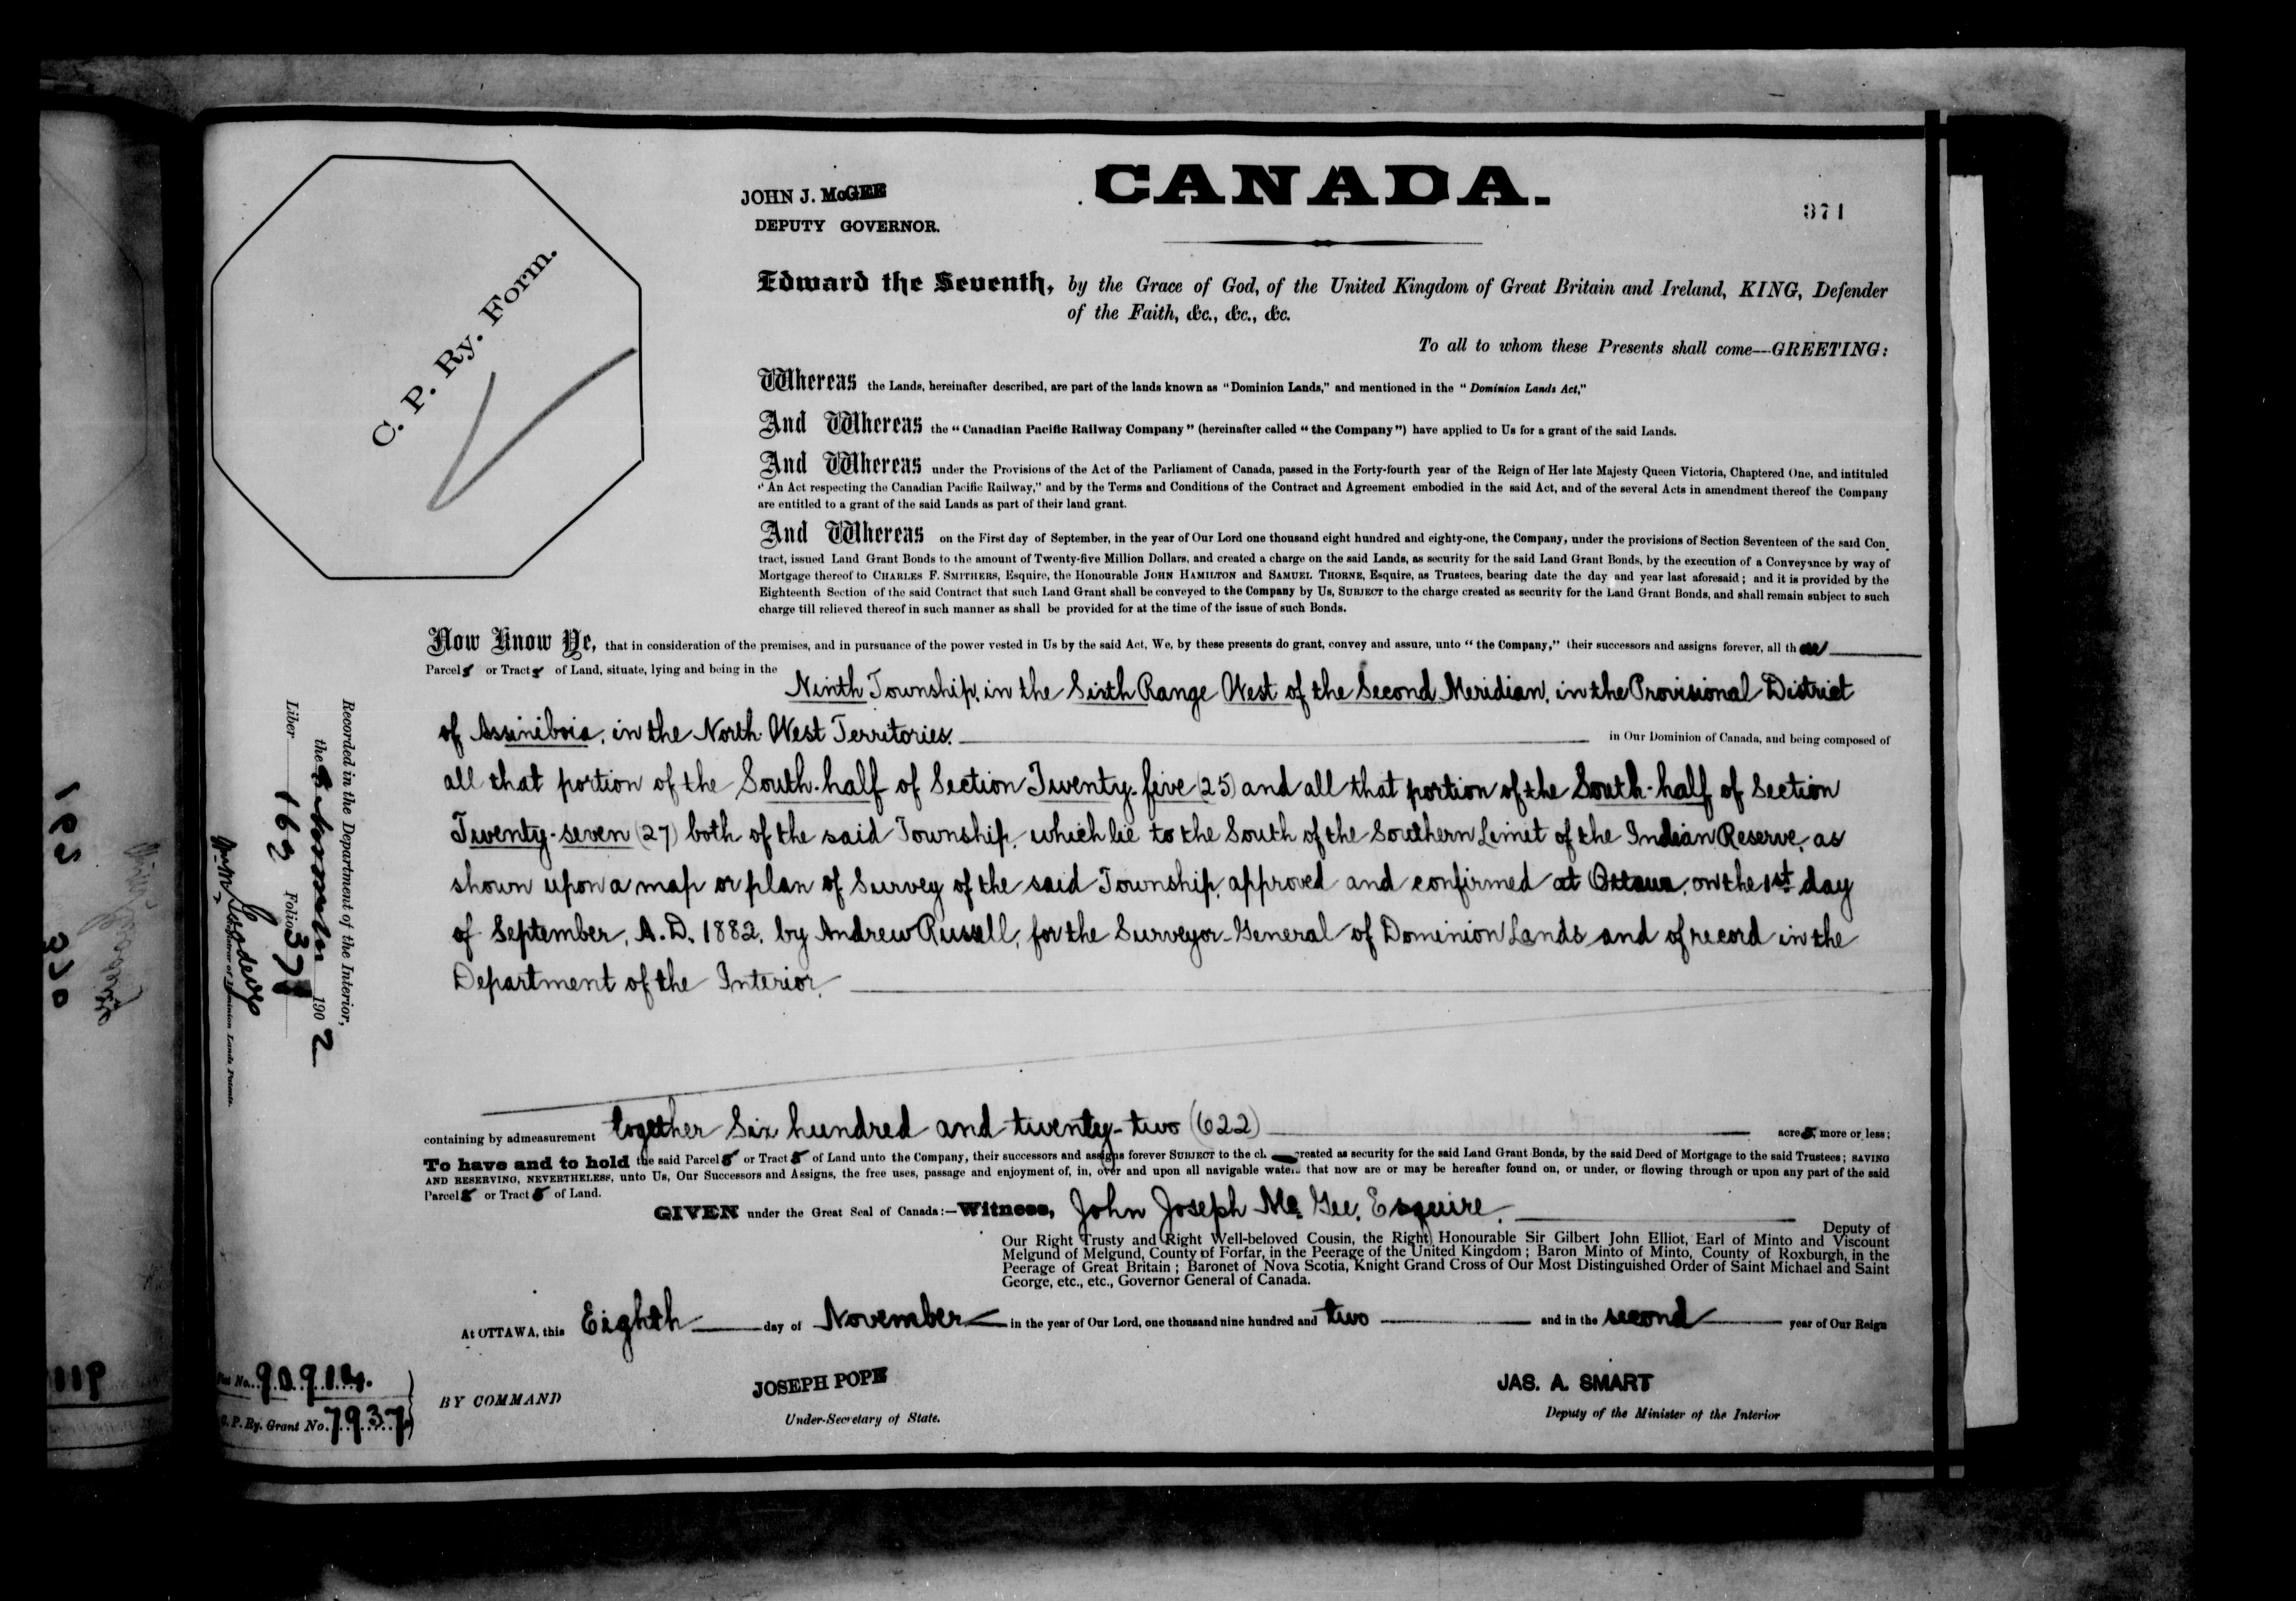 JOHN J. McGEE
DEPUTY GOVERNOR.
CANADA.
371
C. P. Ry. Form.
Edward the Seventh, by the Grace of God, of the United Kingdom of Great Britain and Ireland, KING, Defender
of the Faith, &c., &c., &c.
To all to whom these Presents shall come—GREETING:
Whereas the Lands, hereinafter described, are part of the lands known as "Dominion Lands," and mentioned in the "Dominion Lands Act,"
And Whereas the "Canadian Pacific Railway Company" (hereinafter called "the Company") have applied to Us for a grant of the said Lands.
And Whereas under the Provisions of the Act of the Parliament of Canada, passed in the Forty-fourth year of the Reign of Her late Majesty Queen Victoria, Chaptered One, and intituled
"An Act respecting the Canadian Pacific Railway," and by the Terms and Conditions of the Contract and Agreement embodied in the said Act, and of the several Acts in amendment thereof the Company
are entitled to a grant of the said Lands as part of their land grant.
And Whereas on the First day of September, in the year of Our Lord one thousand eight hundred and eighty-one, the Company, under the provisions of Section Seventeen of the said Con-
tract, issued Land Grant Bonds to the amount of Twenty-five Million Dollars, and created a charge on the said Lands, as security for the said Land Grant Bonds, by the execution of a Conveyance by way of
Mortgage thereof to CHARLES F. SMITHERS, Esquire, the Honourable JOHN HAMILTON and SAMUEL THORNE, Esquire, as Trustees, bearing date the day and year last aforesaid; and it is provided by the
Eighteenth Section of the said Contract that such Land Grant shall be conveyed to the Company by Us, SUBJECT to the charge created as security for the Land Grant Bonds, and shall remain subject to such
charge till relieved thereof in such manner as shall be provided for at the time of the issue of such Bonds.
Now Know Ye, that in consideration of the premises, and in pursuance of the power vested in Us by the said Act, We, by these presents do grant, convey and assure, unto "the Company," their successors and assigns forever, all those
Parcels or Tracts of Land, situate, lying and being in the Ninth Township, in the Sixth Range West of the Second Meridian, in the Provisional District
of Assiniboia, in the North West Territories. in Our Dominion of Canada, and being composed of
all that portion of the South-half of Section Twenty-five (25) and all that portion of the South-half of Section
Twenty-seven (27) both of the said Township, which lie to the South of the Southern Limit of the Indian Reserve, as
shown upon a map or plan of Survey of the said Township, approved and confirmed at Ottawa, on the 1st day
of September, A.D. 1882, by Andrew Russell, for the Surveyor-General of Dominion Lands and of record in the
Department of the Interior.
containing by admeasurement together Six hundred and twenty-two (622) acres, more or less;
To have and to hold the said Parcels or Tracts of Land unto the Company, their successors and assigns forever SUBJECT to the created as security for the said Land Grant Bonds, by the said Deed of Mortgage to the said Trustees; SAVING
AND RESERVING, NEVERTHELESS, unto Us, Our Successors and Assigns, the free uses, passage and enjoyment of, in, over and upon all navigable waters that now are or may be hereafter found on, or under, or flowing through or upon any part of the said
Parcels or Tracts of Land.
GIVEN under the Great Seal of Canada:—Witness, John Joseph McGee, Esquire,
Deputy of
Our Right Trusty and Right Well-beloved Cousin, the Right Honourable Sir Gilbert John Elliot, Earl of Minto and Viscount
Melgund of Melgund, County of Forfar, in the Peerage of the United Kingdom; Baron Minto of Minto, County of Roxburgh, in the
Peerage of Great Britain; Baronet of Nova Scotia, Knight Grand Cross of Our Most Distinguished Order of Saint Michael and Saint
George, etc., etc., Governor General of Canada.
At OTTAWA, this Eighth day of November in the year of Our Lord, one thousand nine hundred and two and in the second year of Our Reign
BY COMMAND
JOSEPH POPE
Under-Secretary of State.
JAS. A. SMART
Deputy of the Minister of the Interior
Recorded in the Department of the Interior,
the 1902
Liber 162 Folio 371
Registrar of Dominion Lands Patents.
No. 90914.
C. P. Ry. Grant No. 7937.